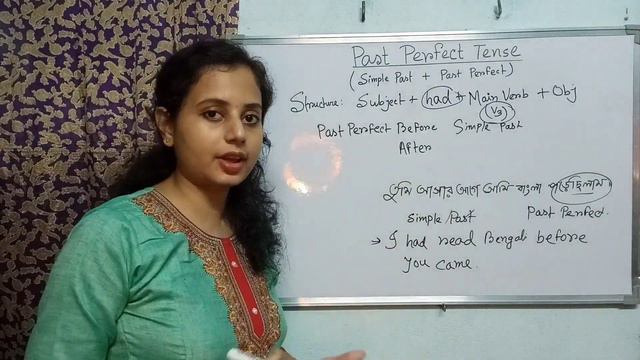 Past Perfect Tense
(Simple Past + Past Perfect)
Structure: Subject + had + Main Verb + Obj
(V3)
Past Perfect Before Simple Past
After
তুমি আসার আগে আমি বাংলা পড়েছিলাম।
Simple Past Past Perfect.
→ I had read Bengali before
you came.